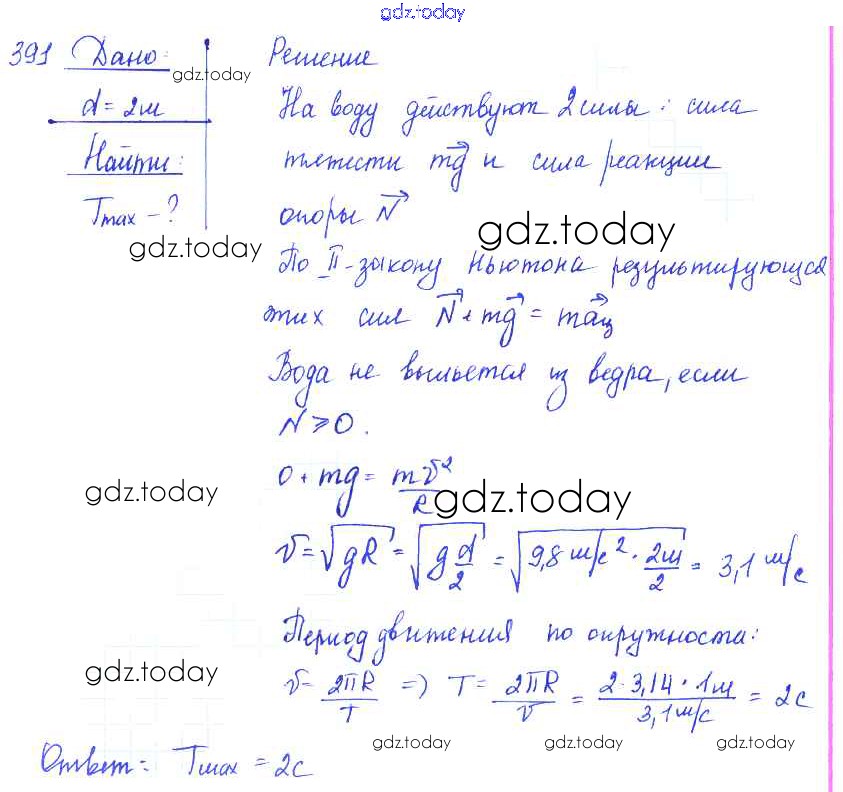 gdz.today
391 Дано:
gdz.today
d = 2м
Найти:
Tmax - ?
gdz.today
Решение
На воду действуют 2 силы: сила
тяжести mg⃗ и сила реакции
опоры N⃗
gdz.today
По II-закону Ньютона результирующая
этих сил N⃗ + mg⃗ = ma⃗ц
Вода не выльется из ведра, если
N ≥ 0.
gdz.today
0 + mg = mv²/R
gdz.today
v = √gR = √(g d/2) = √(9,8 м/с² · 2м/2) = 3,1 м/с
Период движения по окружности:
gdz.today
v = 2πR/T => T = 2πR/v = 2·3,14·1м/3,1 м/с = 2с
gdz.today gdz.today gdz.today
Ответ: Tmax = 2с